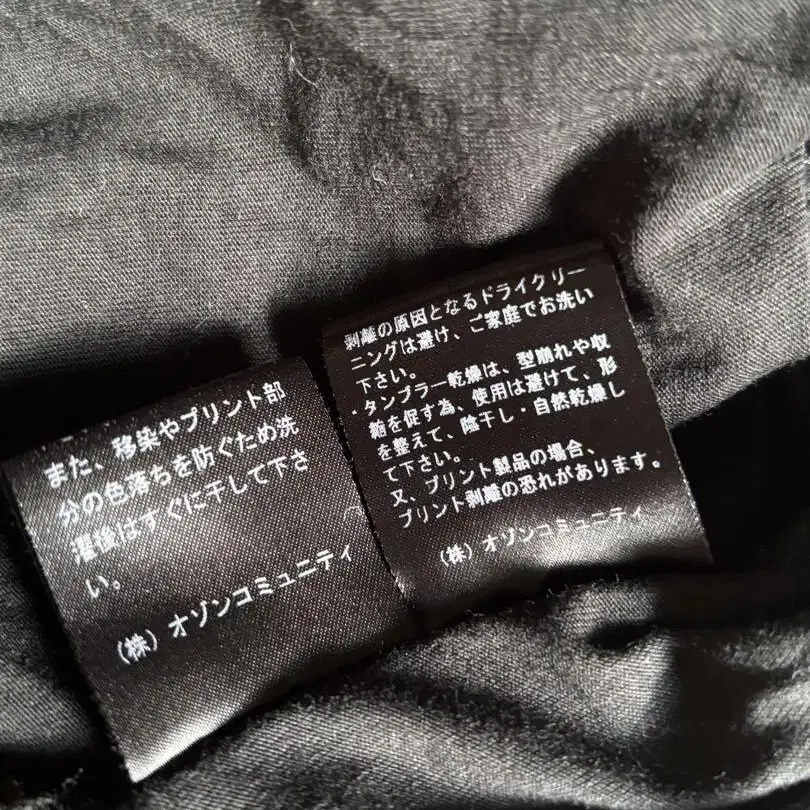 また、移染やプリント部
分の色落ちを防ぐため洗
濯後はすぐに干して下さ
い。
(株)オゾンコミュニティ
剥離の原因となるドライクリー
ニングは避け、ご家庭でお洗い
下さい。
・タンブラー乾燥は、型崩れや収
縮を促す為、使用は避けて、形
を整えて、陰干し・自然乾燥し
て下さい。
又、プリント製品の場合、
プリント剥離の恐れがあります。
(株)オゾンコミュニティ